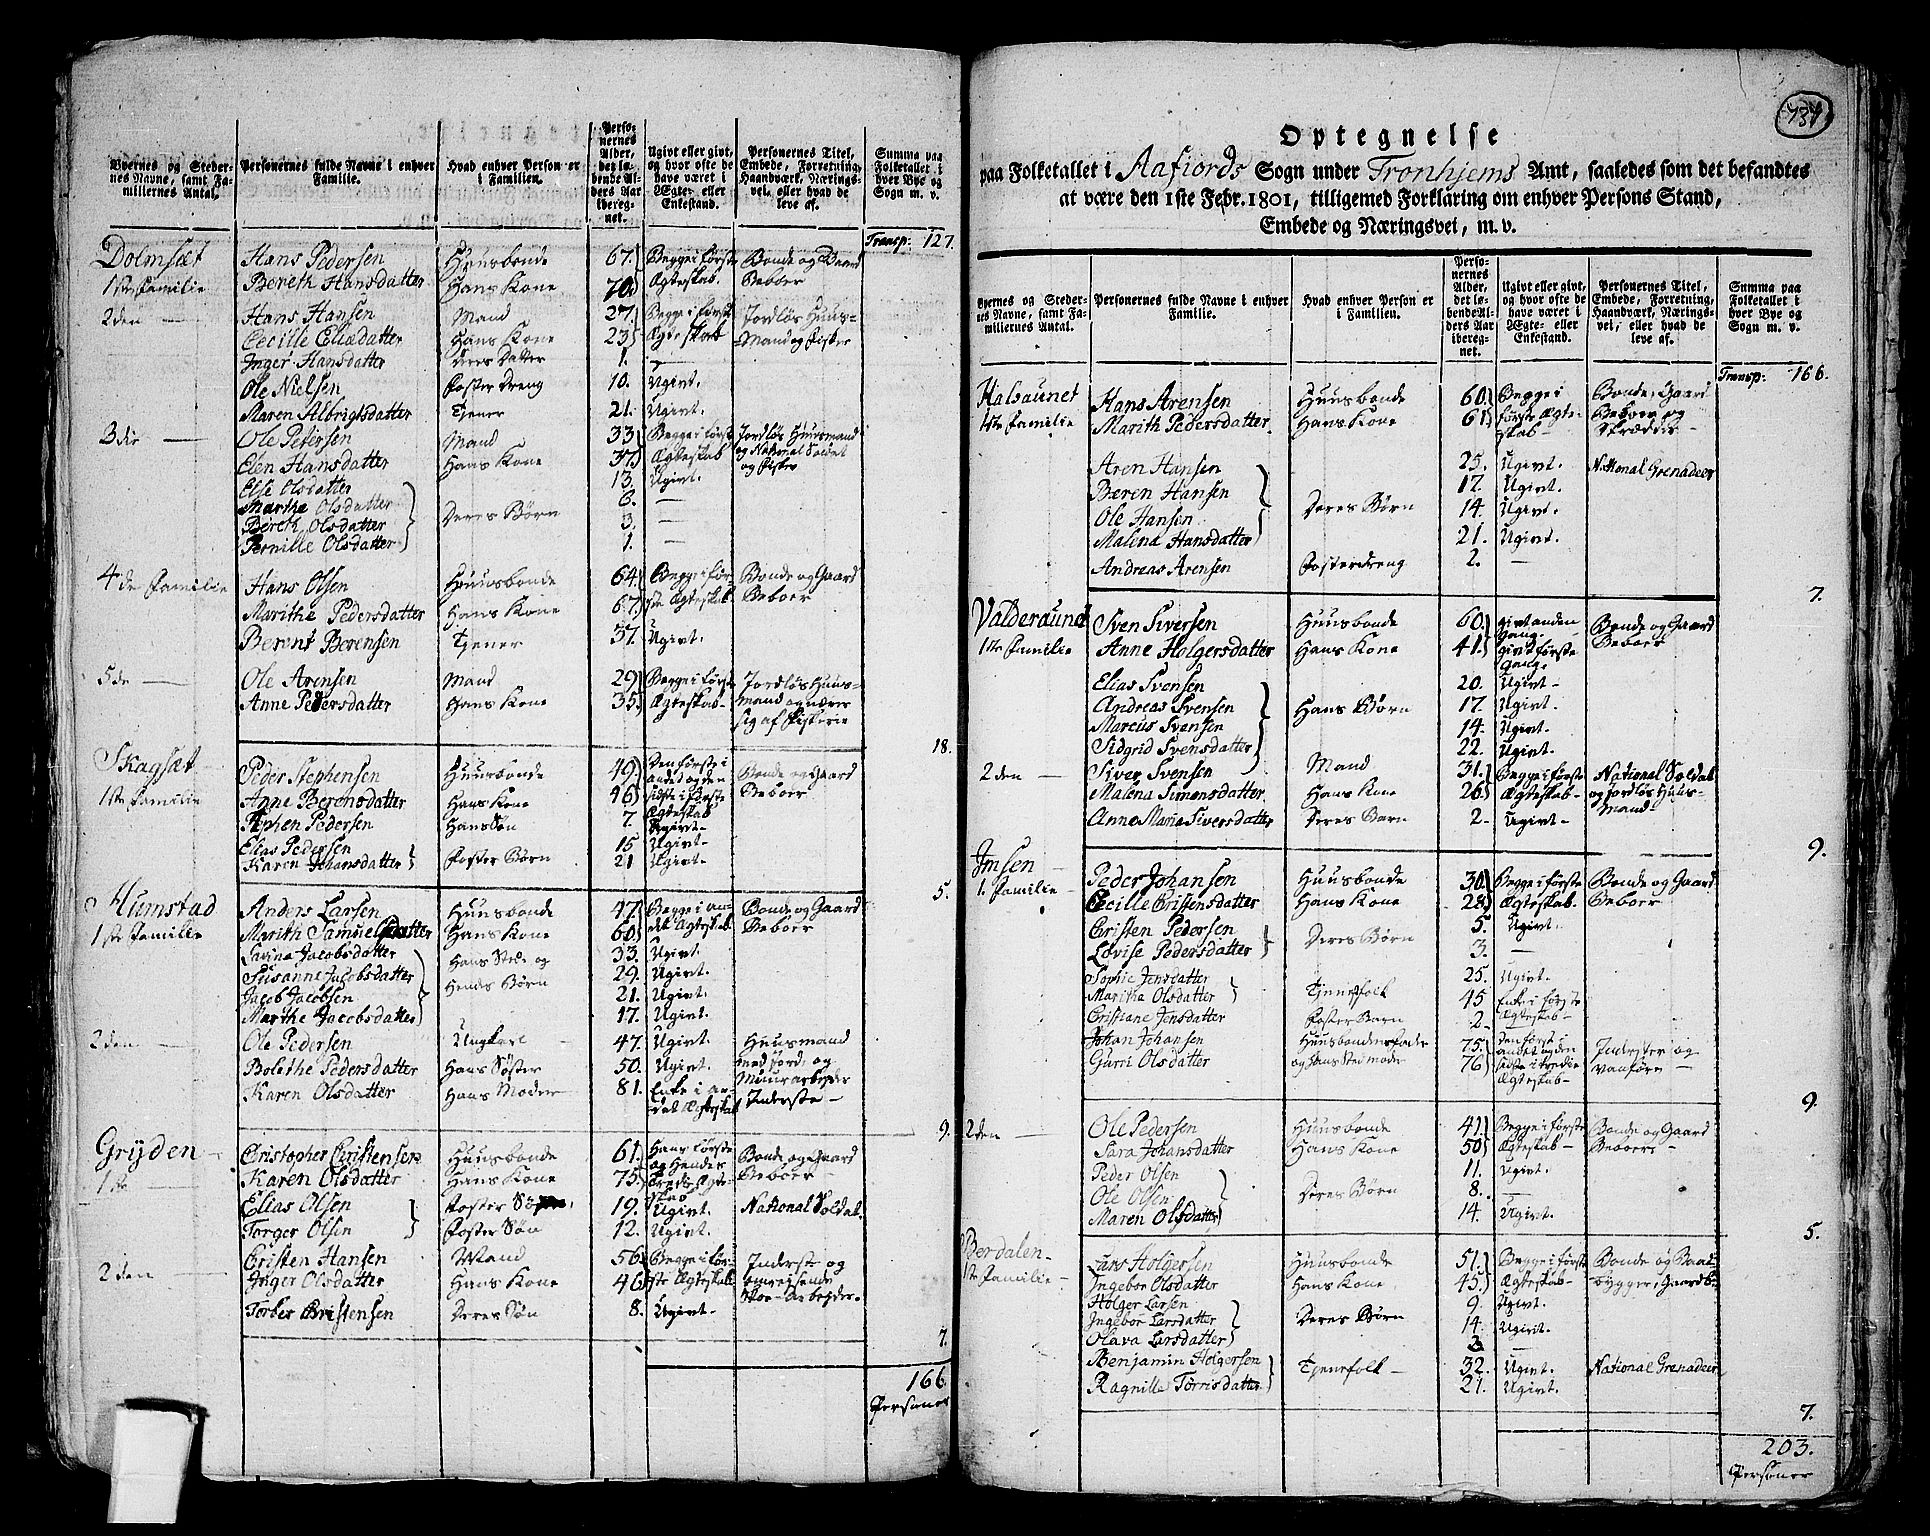 Byernes og Steder-
nes Navne, samt Fa-
miliernes Antal.
Personernes fulde Navne i enhver
Familie.
Hvad enhver Person er
i Familien.
Perso-
nernes
Alder,
det lø-
bende Al-
ders Aar
iberegt-
net.
Ugivt eller givt,
og hvor ofte de
have været i
Ægte- eller
Enkestand.
Personernes Titel,
Embede, Forretning,
Haandværk, Nærings-
vei, eller hvad de
leve af.
Summa paa
Folketallet i
hver Bye og
Sogn m. v.
Transp: 127.
Dolmsæt Hans Pedersen Huusbonde 67. Begge i første Bonde og Gaard
1ste Familie Bereth Hansdatter Hans Kone 70. Ægteskab. Beboer
2den — Hans Hansen Mand 27. Begge i først Jordløs Huus-
Cecille Eliasdatter Hans Kone 23. Ægteskab Mand og Fisker
Inger Hansdatter Deres Datter 1. —
Ole Nielsen Foster Dreng 10. Ugivt.
Maren Albrigtsdatter Tjener 21. Ugivt.
3die — Ole Petersen Mand 33 Begge i først Jordløs Huusmand
Elen Hansdatter Hans Kone 37. Ægteskab og National Soldat
Else Olsdatter 13. Ugivt. og Fisker
Marthe Olsdatter 6. —
Bereth Olsdatter Deres Børn 3. —
Pernille Olsdatter 1. —
4de Familie Hans Olsen Huusbonde 64. Begge i før- Bonde og Gaard
Marithe Pedersdatter Hans Kone 67 ste Ægteskab. Beboer
Berent Berensen Tjener 37. Ugivt.
5de — Ole Arensen Mand 29 Begge i første Jordløs Huus-
Anne Pedersdatter Hans Kone 35. Ægteskab- mand og nærer
sig af Fiskerie
18.
Skagsæt Peder Stephensen Huusbonde 49. Den første i Bonde og Gaard
1ste Familie Anne Berensdatter Hans Kone 46 andet og den Beboer
sidste i første
Ægteskab
Stephen Pedersen Hans Søn 7. Ugivt-
Elias Pedersen 15 Ugivt-
Karen Johansdatter Foster Børn 21 Ugivt-
5.
Humstad Anders Larsen Huusbonde 47. Begge i an- Bonde og Gaard
1ste Familie Marith Samuelsdatter Hans Kone 60. det Ægteskab Beboer
Lavina Jacobsdatter 33. Ugivt
Susanne Jacobsdatter Hans Sted og 29. Ugivt.
Jacob Jacobsen Hendes Børn 21. Ugivt.
Marthe Jacobsdatter 17. Ugivt.
2den — Ole Pedersen Ungkarl 47. Ugivt. Huusmand
Bolethe Pedersdatter Hans Søster 50. Ugivt. med Jord, og
Muurarbejder
Karen Olsdatter Hans Moder 81. Enke i an- Inderste —
det Ægteskab
9.
Gryden Cristopher Cristensen Huusbonde 61. Hans første Bonde og Gaard
1ste — Karen Olsdatter Hans Kone 75. og Hendes Beboer
tredie Ægte-
skab
Elias Olsen Foster Søn 19. Ugivt. National Soldat.
Torger Olsen Foster Søn 12. Ugivt.
2den — Cristen Hansen Mand 56. Begge i før- Inderste og
Inger Olsdatter Hans Kone 46 ste Ægteskab omrejsende
Skoe-Arbejder.
Torber Cristensen Deres Søn 8. Ugivt.
7.
166
Personer
134
Optegnelse
paa Folketallet i Aafiords Sogn under Tronhjems Amt, saaledes som det befandtes
at være den 1ste Febr. 1801, tilligemed Forklaring om enhver Persons Stand,
Embede og Næringsvei, m. v.
Byernes og Steder-
nes Navne, samt Fa-
miliernes Antal.
Personernes fulde Navne i enhver
Familie.
Hvad enhver Person er
i Familien.
Perso-
nernes
Alder,
det lø-
bende Al-
ders Aar
iberegt-
net.
Ugivt eller givt,
og hvor ofte de
have været i
Ægte- eller
Enkestand.
Personernes Titel,
Embede, Forretning,
Haandværk, Nærings-
vei, eller hvad de
leve af.
Summa paa
Folketallet i
hver Bye og
Sogn m. v.
Transp: 166.
Halsaunet Hans Arensen Huusbonde 60. Begge i Bonde, Gaard
1ste Familie Marith Pedersdatter Hans Kone 61. første Ægte- Beboer og
skab- Skrædder —
Aren Hansen 25. Ugivt. National Grenadeer
Beren Hansen 17. Ugivt.
Ole Hansen Deres Børn 14. Ugivt.
Malena Hansdatter 21. Ugivt.
Andreas Arensen Fosterdreng 2. —
7.
Valderaunet Sven Siversen Huusbonde 60. givt anden Bonde og Gaard
Gang.
1ste Familie Anne Holgersdatter Hans Kone 41. givt første Beboer
Gang.
Elias Svensen 20. Ugivt-
Andreas Svensen Hans Børn 17. Ugivt.
Marcus Svensen 14. Ugivt.
Sidgrid Svensdatter 22. Ugivt.
2den — Siver Svensen Mand 31. Begge i første National Soldat
Malena Simonsdatter Hans Kone 26. Ægteskab- og Jordløs Huus-
Anne Maria Siversdatter Deres Barn 2- Ugivt- Mand
9.
Imsen Peder Johansen Huusbonde 30. Begge i første Bonde og Gaard
1. Familie Cecille Cristensdatter Hans Kone 28. Ægteskab. Beboer
Cristen Pedersen Deres Børn 5. Ugivt.
Lovise Pedersdatter 3. —
Sophie Jensdatter 25. Ugivt.
Maritha Olsdatter Tjenestfolk 45 Enke i første
Ægteskab-
Cristiane Jensdatter Foster Barn 2- —
Johan Johansen Huusbondens fader 75. den først i Inderster og
Gurri Olsdatter og Hans Sted moder 76 andet og den vanføre —
sidste i tredie
Ægteskab-
9.
2den — Ole Pedersen Huusbonde 41. Begge i første Bonde og Gaard
Sara Johansdatter Hans Kone 50 Ægteskab- Beboer-
Peder Olsen 11. Ugivt.
Ole Olsen Deres Børn 8. —
Maren Olsdatter 14. Ugivt.
5.
Berdalen- Lars Holgersen Huusbonde 51. Begge i første Bonde og Baad-
1ste Familie- Ingebor Olsdatter Hans Kone 45. Ægteskab- bygger, Gaardb-
Holger Larsen 9. Ugivt.
Ingebor Larsdatter Deres Børn 14. Ugivt.
Olava Larsdatter 3 —
Benjamin Holgersen Tjenestfolk — 32. Ugivt. National Grenadeer
Ragnille Torrisdatter 21. Ugivt.
7.
203.
Personer